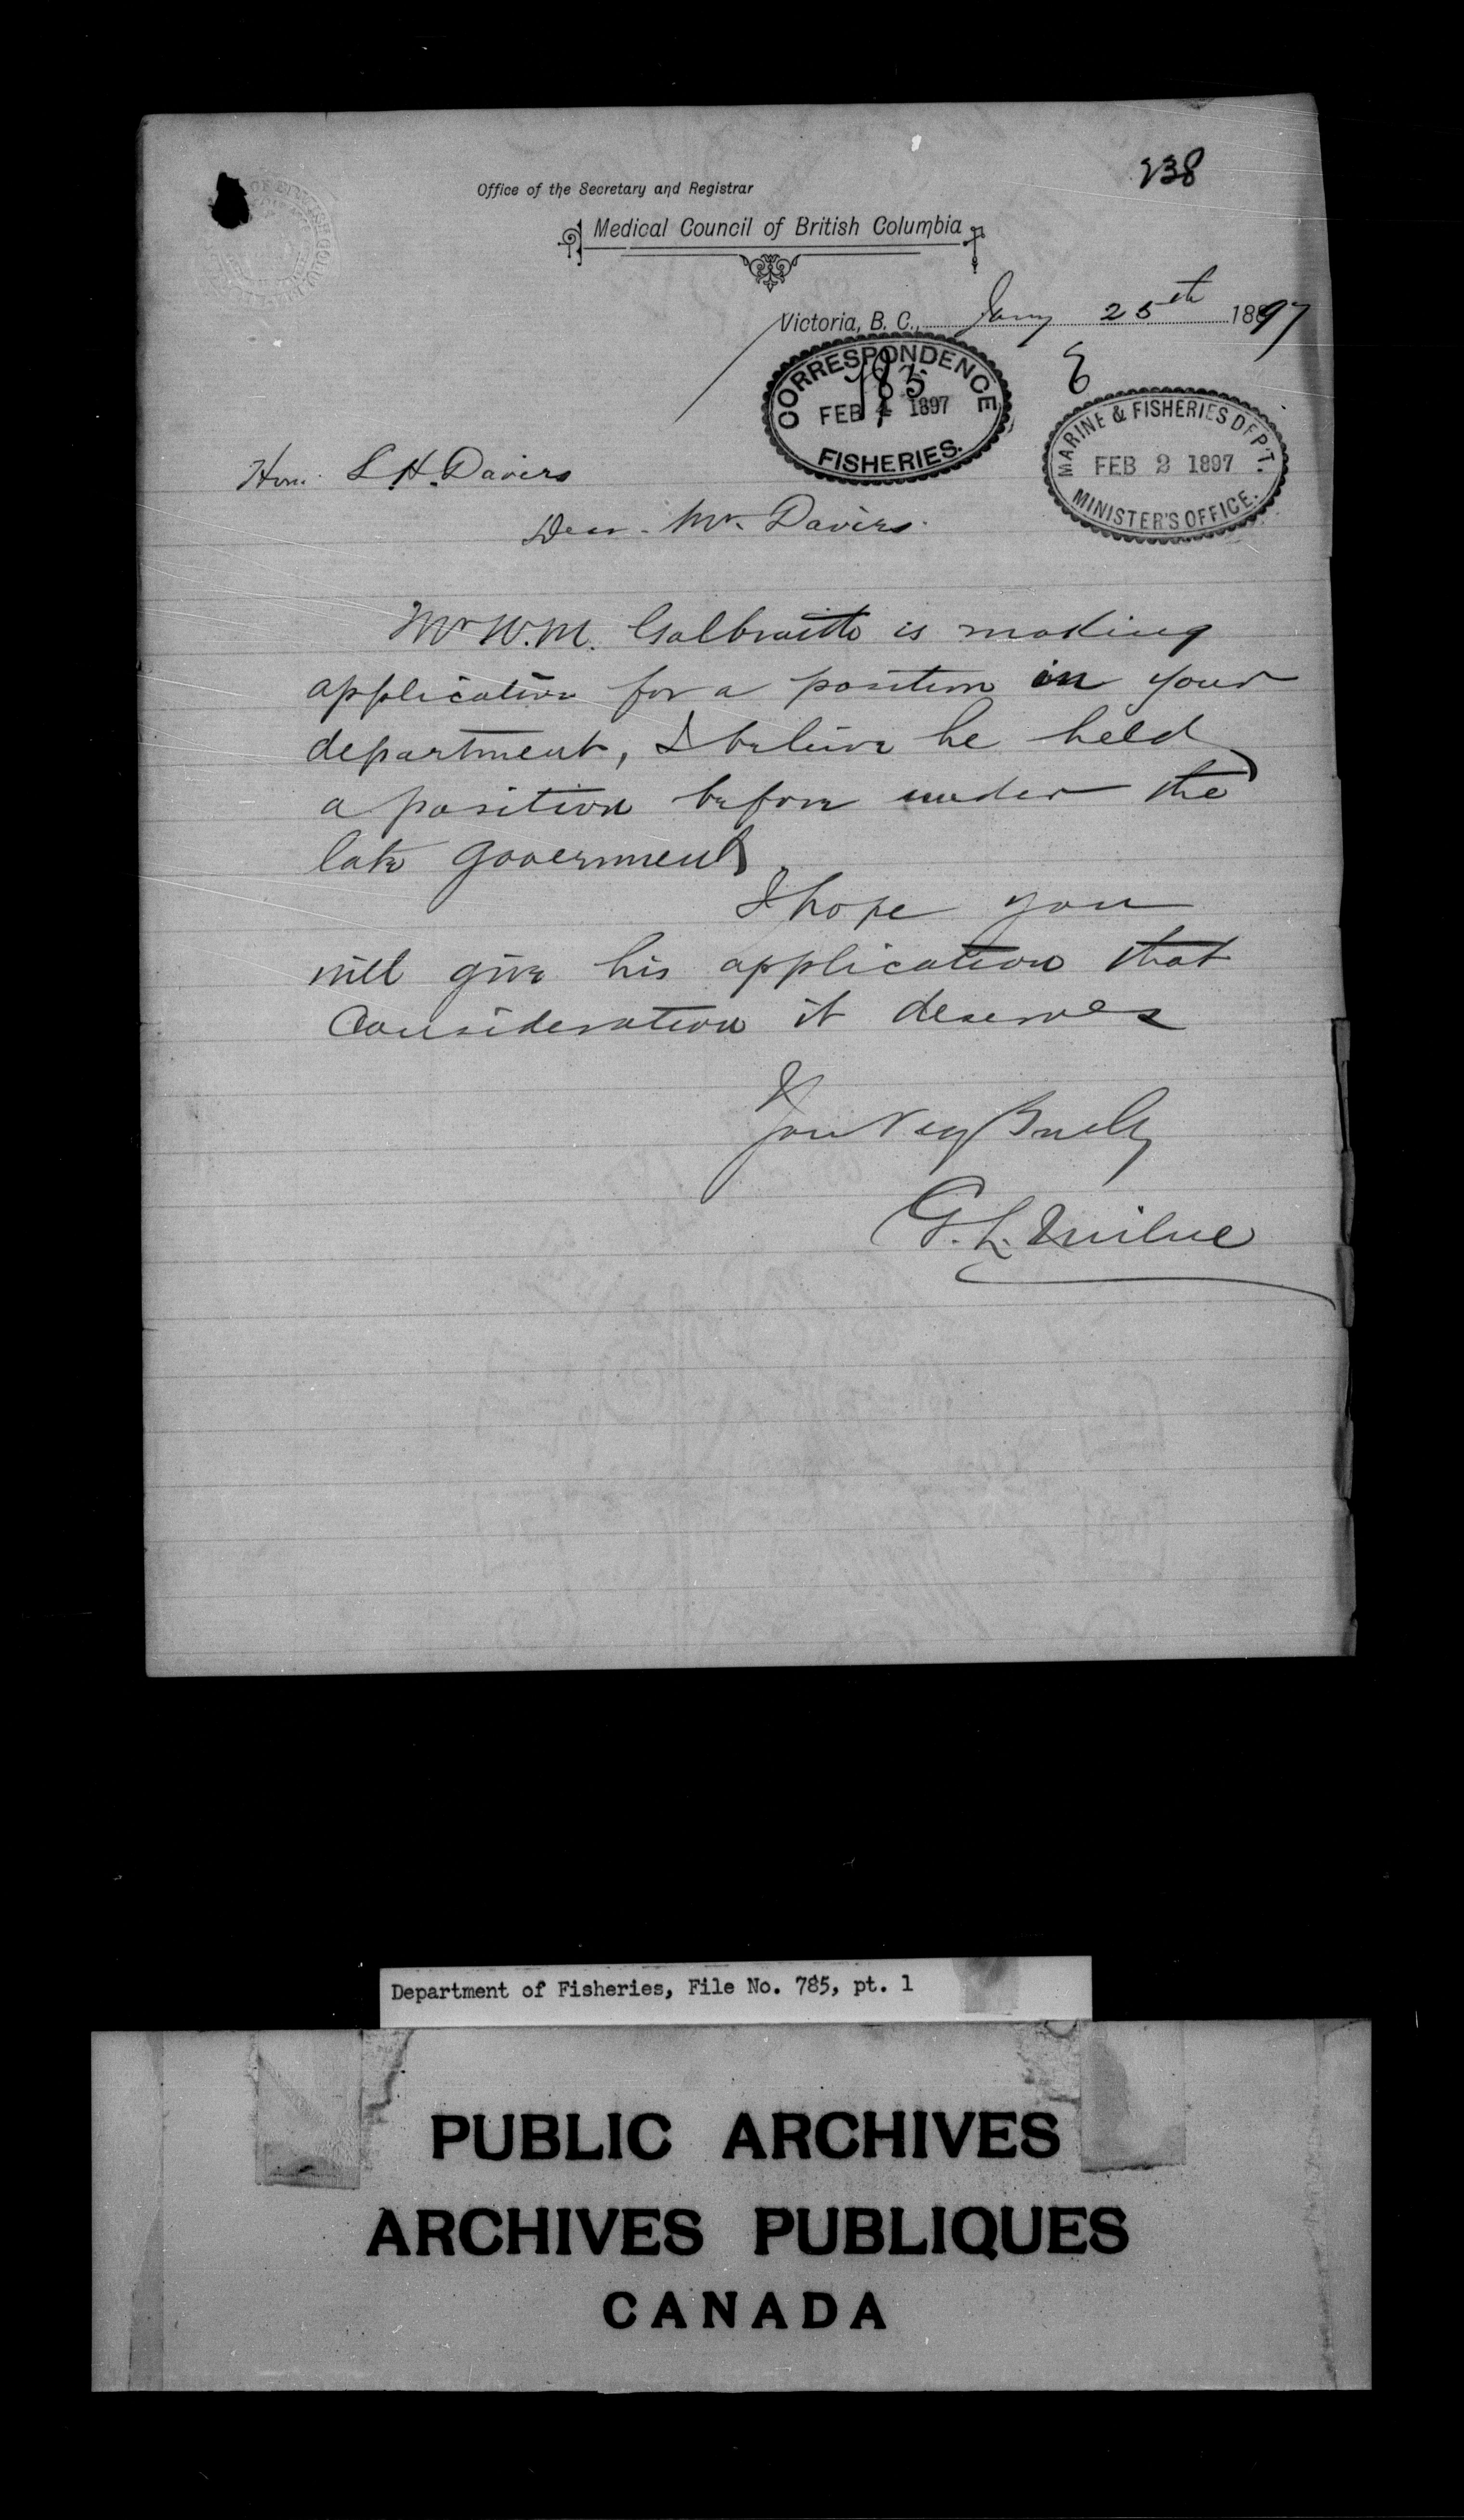 238
Office of the Secretary and Registrar
Medical Council of British Columbia
Victoria, B. C., Jany 25th 1897
CORRESPONDENCE
FEB 1897
FISHERIES.
MARINE & FISHERIES DEP'T.
FEB 2 1897
MINISTER'S OFFICE.
Hon. L. H. Davies
Dear Mr. Davies.
Mr W. M. Galbraith is making
application for a position in your
department, I believe he held
a position before under the
late Government.
I hope you
will give his application that
Consideration it deserves
G. L. Milne
Department of Fisheries, File No. 785, pt. 1
PUBLIC ARCHIVES
ARCHIVES PUBLIQUES
CANADA